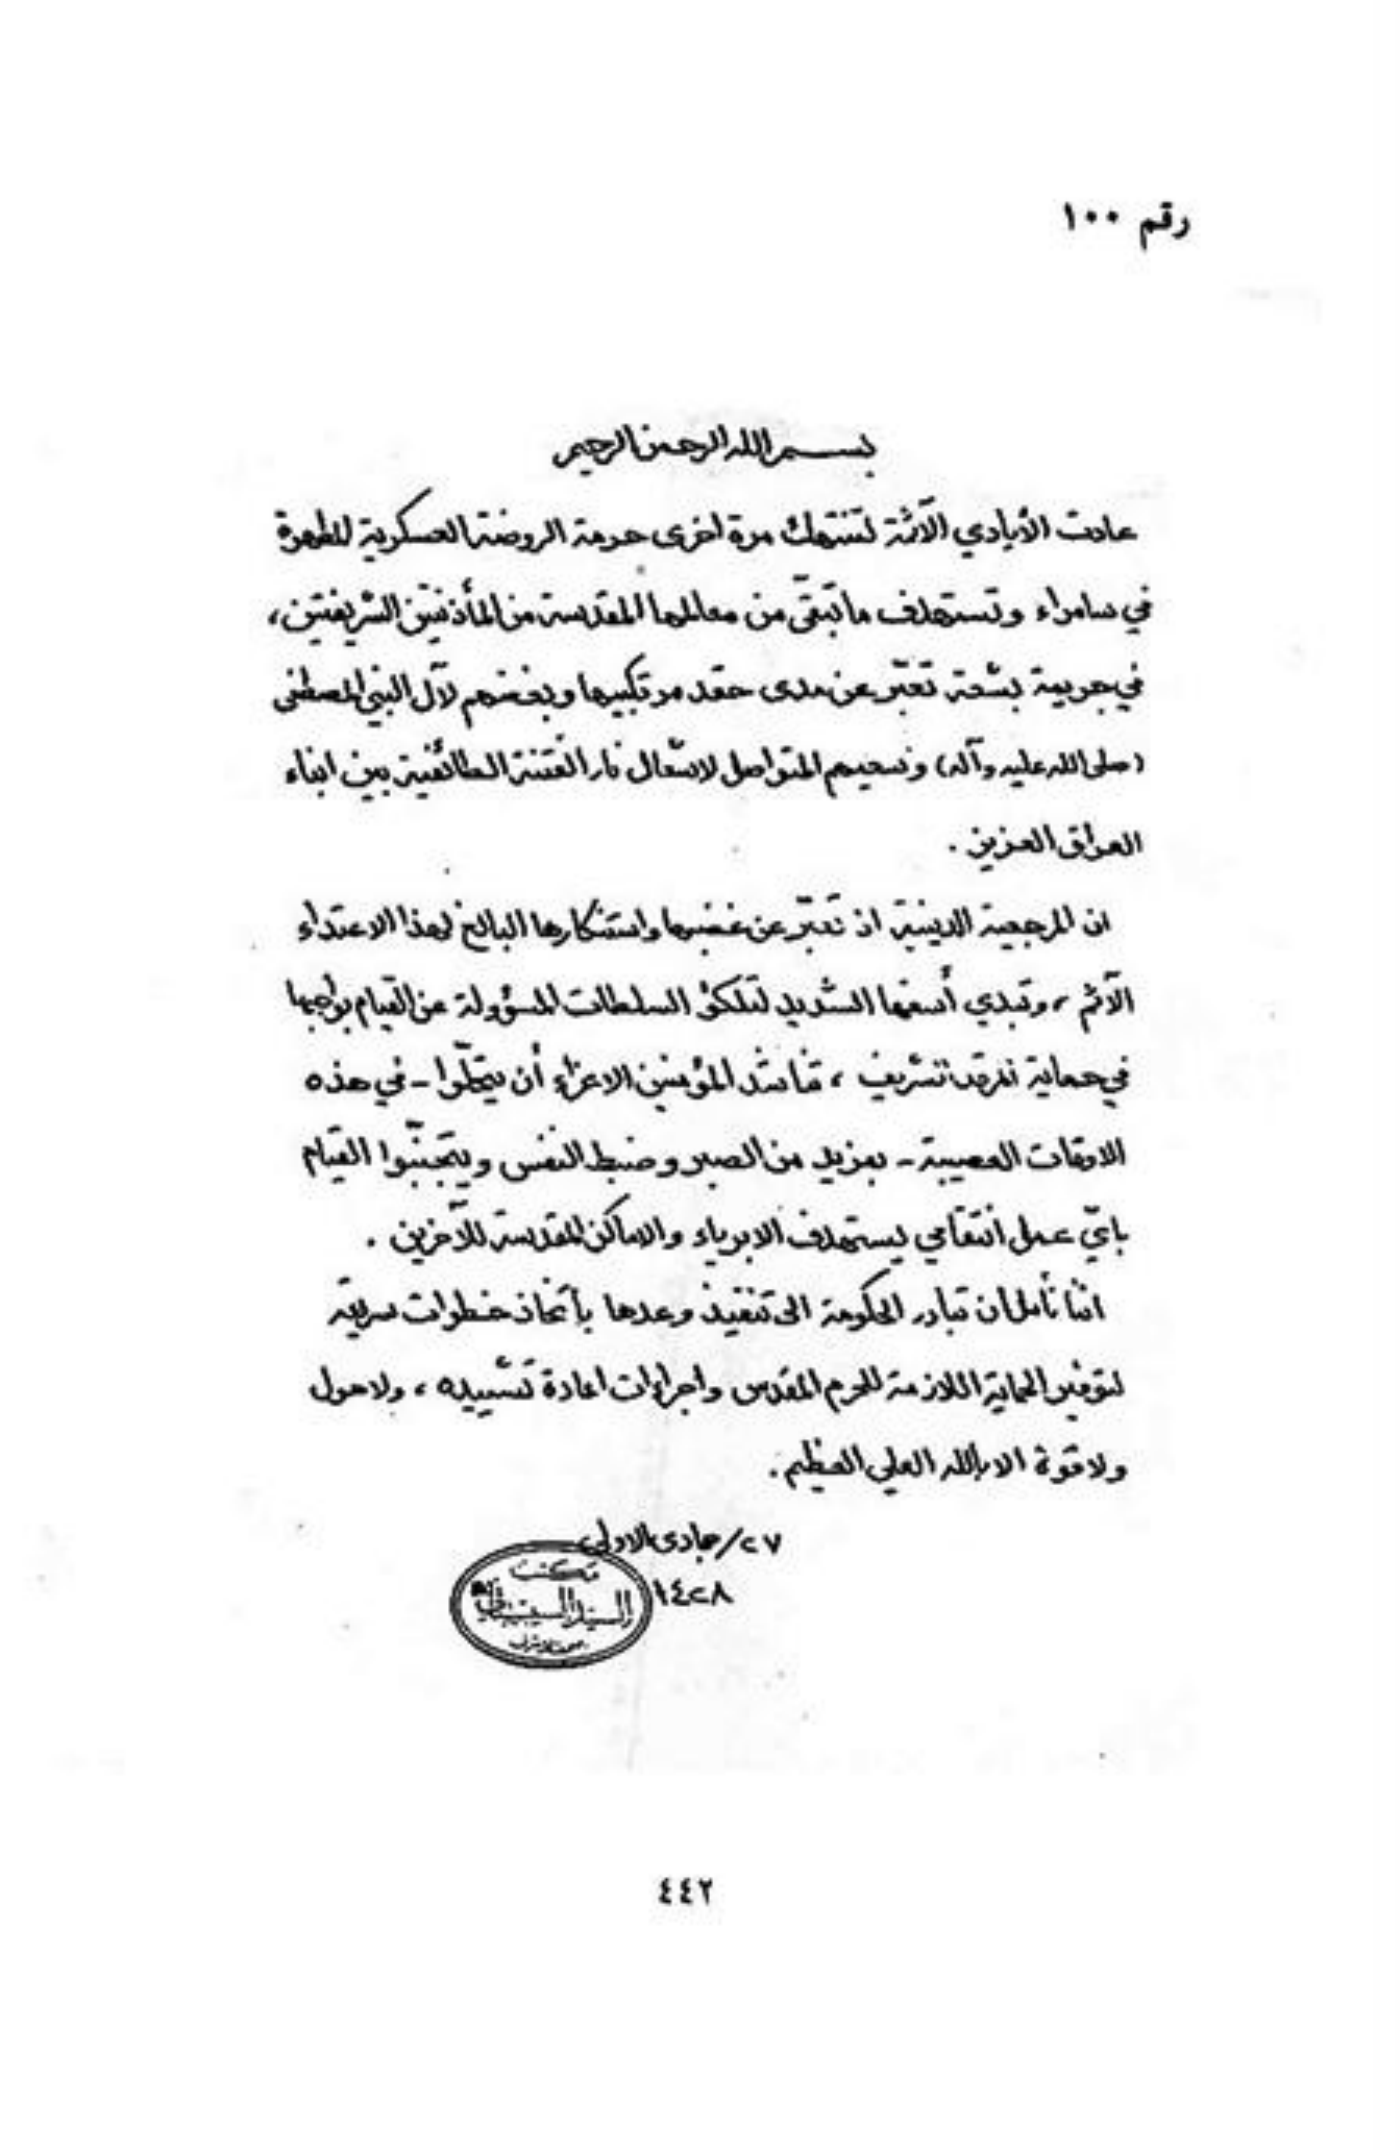 رقم ١٠٠
بسم الله الرحمن الرحيم
عادت الأيادي الآثمة لتنتهك مرة اخرى حرمة الروضة العسكرية المطهرة
في سامراء وتستهدف ما تبقّى من معالمها المقدسة من المأذنتين الشريفتين،
في جريمة بشعة تعبّر عن مدى حقد مرتكبيها وبغضهم لآل النبي المصطفى
(صلى الله عليه وآله) وسعيهم المتواصل لاشعال نار الفتنة الطائفية بين ابناء
العراق العزيز .
ان المرجعية الدينية اذ تعبّر عن غضبها واستنكارها البالغ لهذا الاعتداء
الآثم ، وتبدي أسفها الشديد لتلكؤ السلطات المسؤولة عن القيام بواجبها
في حماية المرقد الشريف ، تناشد المؤمنين الاعزاء أن يتحلّوا - في هذه
الاوقات العصيبة - بمزيد من الصبر وضبط النفس ويتجنّبوا القيام
بايّ عمل انتقامي يستهدف الابرياء والاماكن المقدسة للآخرين .
اننا نأمل ان تبادر الحكومة الى تنفيذ وعدها بأتخاذ خطوات سريعة
لتوفير الحماية اللازمة للحرم المقدس واجراءات اعادة تشييده ، ولا حول
ولا قوة الا بالله العلي العظيم .
٢٧/جمادى الاولى
١٤٢٨
مكتب
السيد السيستاني
٤٤٢